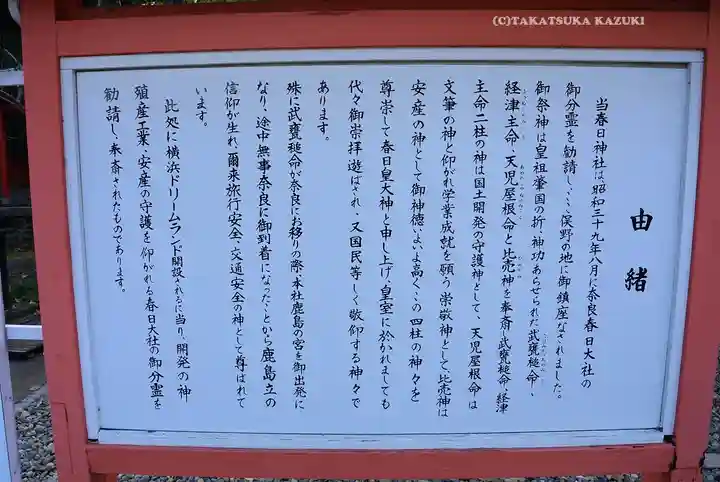 (C)TAKATSUKA KAZUKI
由緒
当春日神社は、昭和三十九年八月に奈良春日大社の
御分霊を勧請し、ここ俣野の地に御鎮座なされました。
御祭神は皇祖肇国の折、神功あらせられた武甕槌命、
経津主命、天児屋根命と比売神を奉斎し武甕槌命、経津
主命二柱の神は国土開発の守護神として、天児屋根命は
文筆の神と仰がれ学業成就を願う崇敬神として、比売神は
安産の神として御神徳いよいよ高く、この四柱の神々を
尊崇して春日皇大神と申し上げ、皇室に於かれましても
代々御崇拝遊ばされ、又国民等しく敬仰する神々で
あります。
殊に武甕槌命が奈良にお移りの際、本社鹿島の宮を御出発に
なり、途中無事奈良に御到着になったことから鹿島立の
信仰が生れ、爾来旅行安全、交通安全の神として尊ばれて
います。
此処に横浜ドリームランド開設されるに当り、開発の神
殖産工業、安産の守護を仰がれる春日大社の御分霊を
勧請し、奉斎されたものであります。